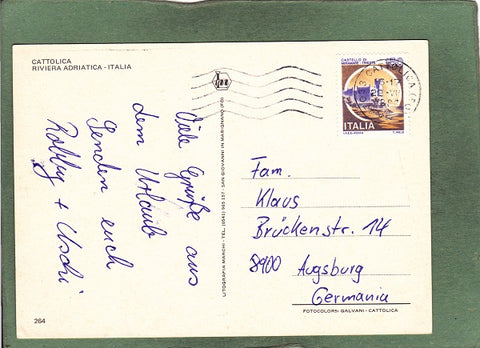 CATTOLICA
RIVIERA ADRIATICA - ITALIA
Viele Grüße aus
dem Urlaub
senden euch
Robby + Uschi
LITOGRAFIA MARCHI - TEL. (0541) 955 157 - SAN GIOVANNI IN MARIGNANO (FO)
CASTELLO DI
MIRAMARE - TRIESTE
ITALIA
CATTOLICA
Fam.
Klaus
Brückenstr. 14
8900 Augsburg
Germania
FOTOCOLORI: GALVANI - CATTOLICA
264